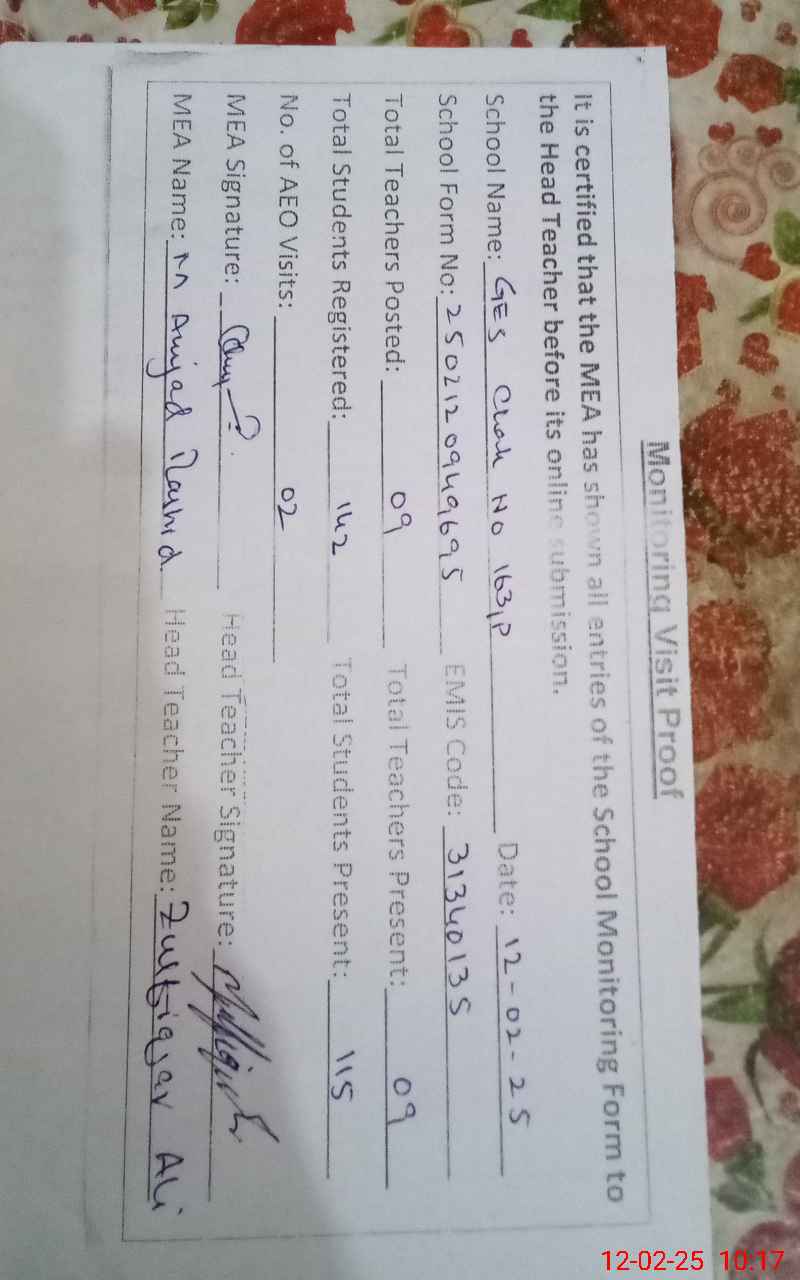 Monitoring Visit Proof
It is certified that the MEA has shown all entries of the School Monitoring Form to
the Head Teacher before its online submission.
School Name: GES Chak No 163,P Date: 12-02-25
School Form No: 2502120949695 EMIS Code: 31340135
Total Teachers Posted: 09 Total Teachers Present: 09
Total Students Registered: 142 Total Students Present: 115
No. of AEO Visits: 02
MEA Signature: Head Teacher Signature:
MEA Name: M Amjad Rashid Head Teacher Name: Zulfiqar Ali
12-02-25 10:17